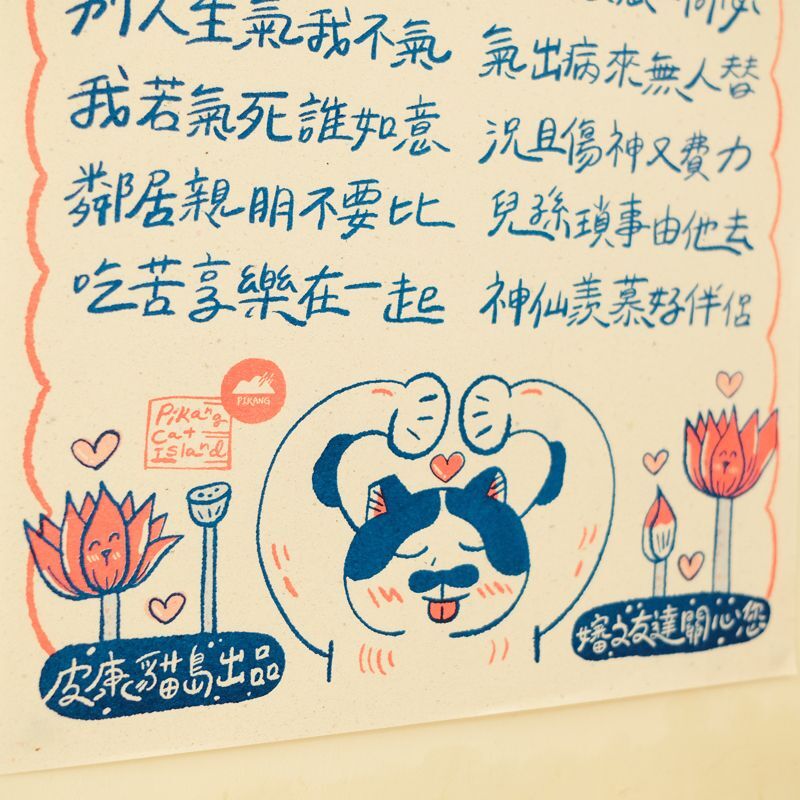 別人生氣我不氣
氣出病來無人替
我若氣死誰如意
況且傷神又費力
鄰居親朋不要比
兒孫瑣事由他去
吃苦享樂在一起
神仙羨慕好伴侶
PIKANG
Pikang
Cat
Island
皮康貓島出品
嬸文友達關心您